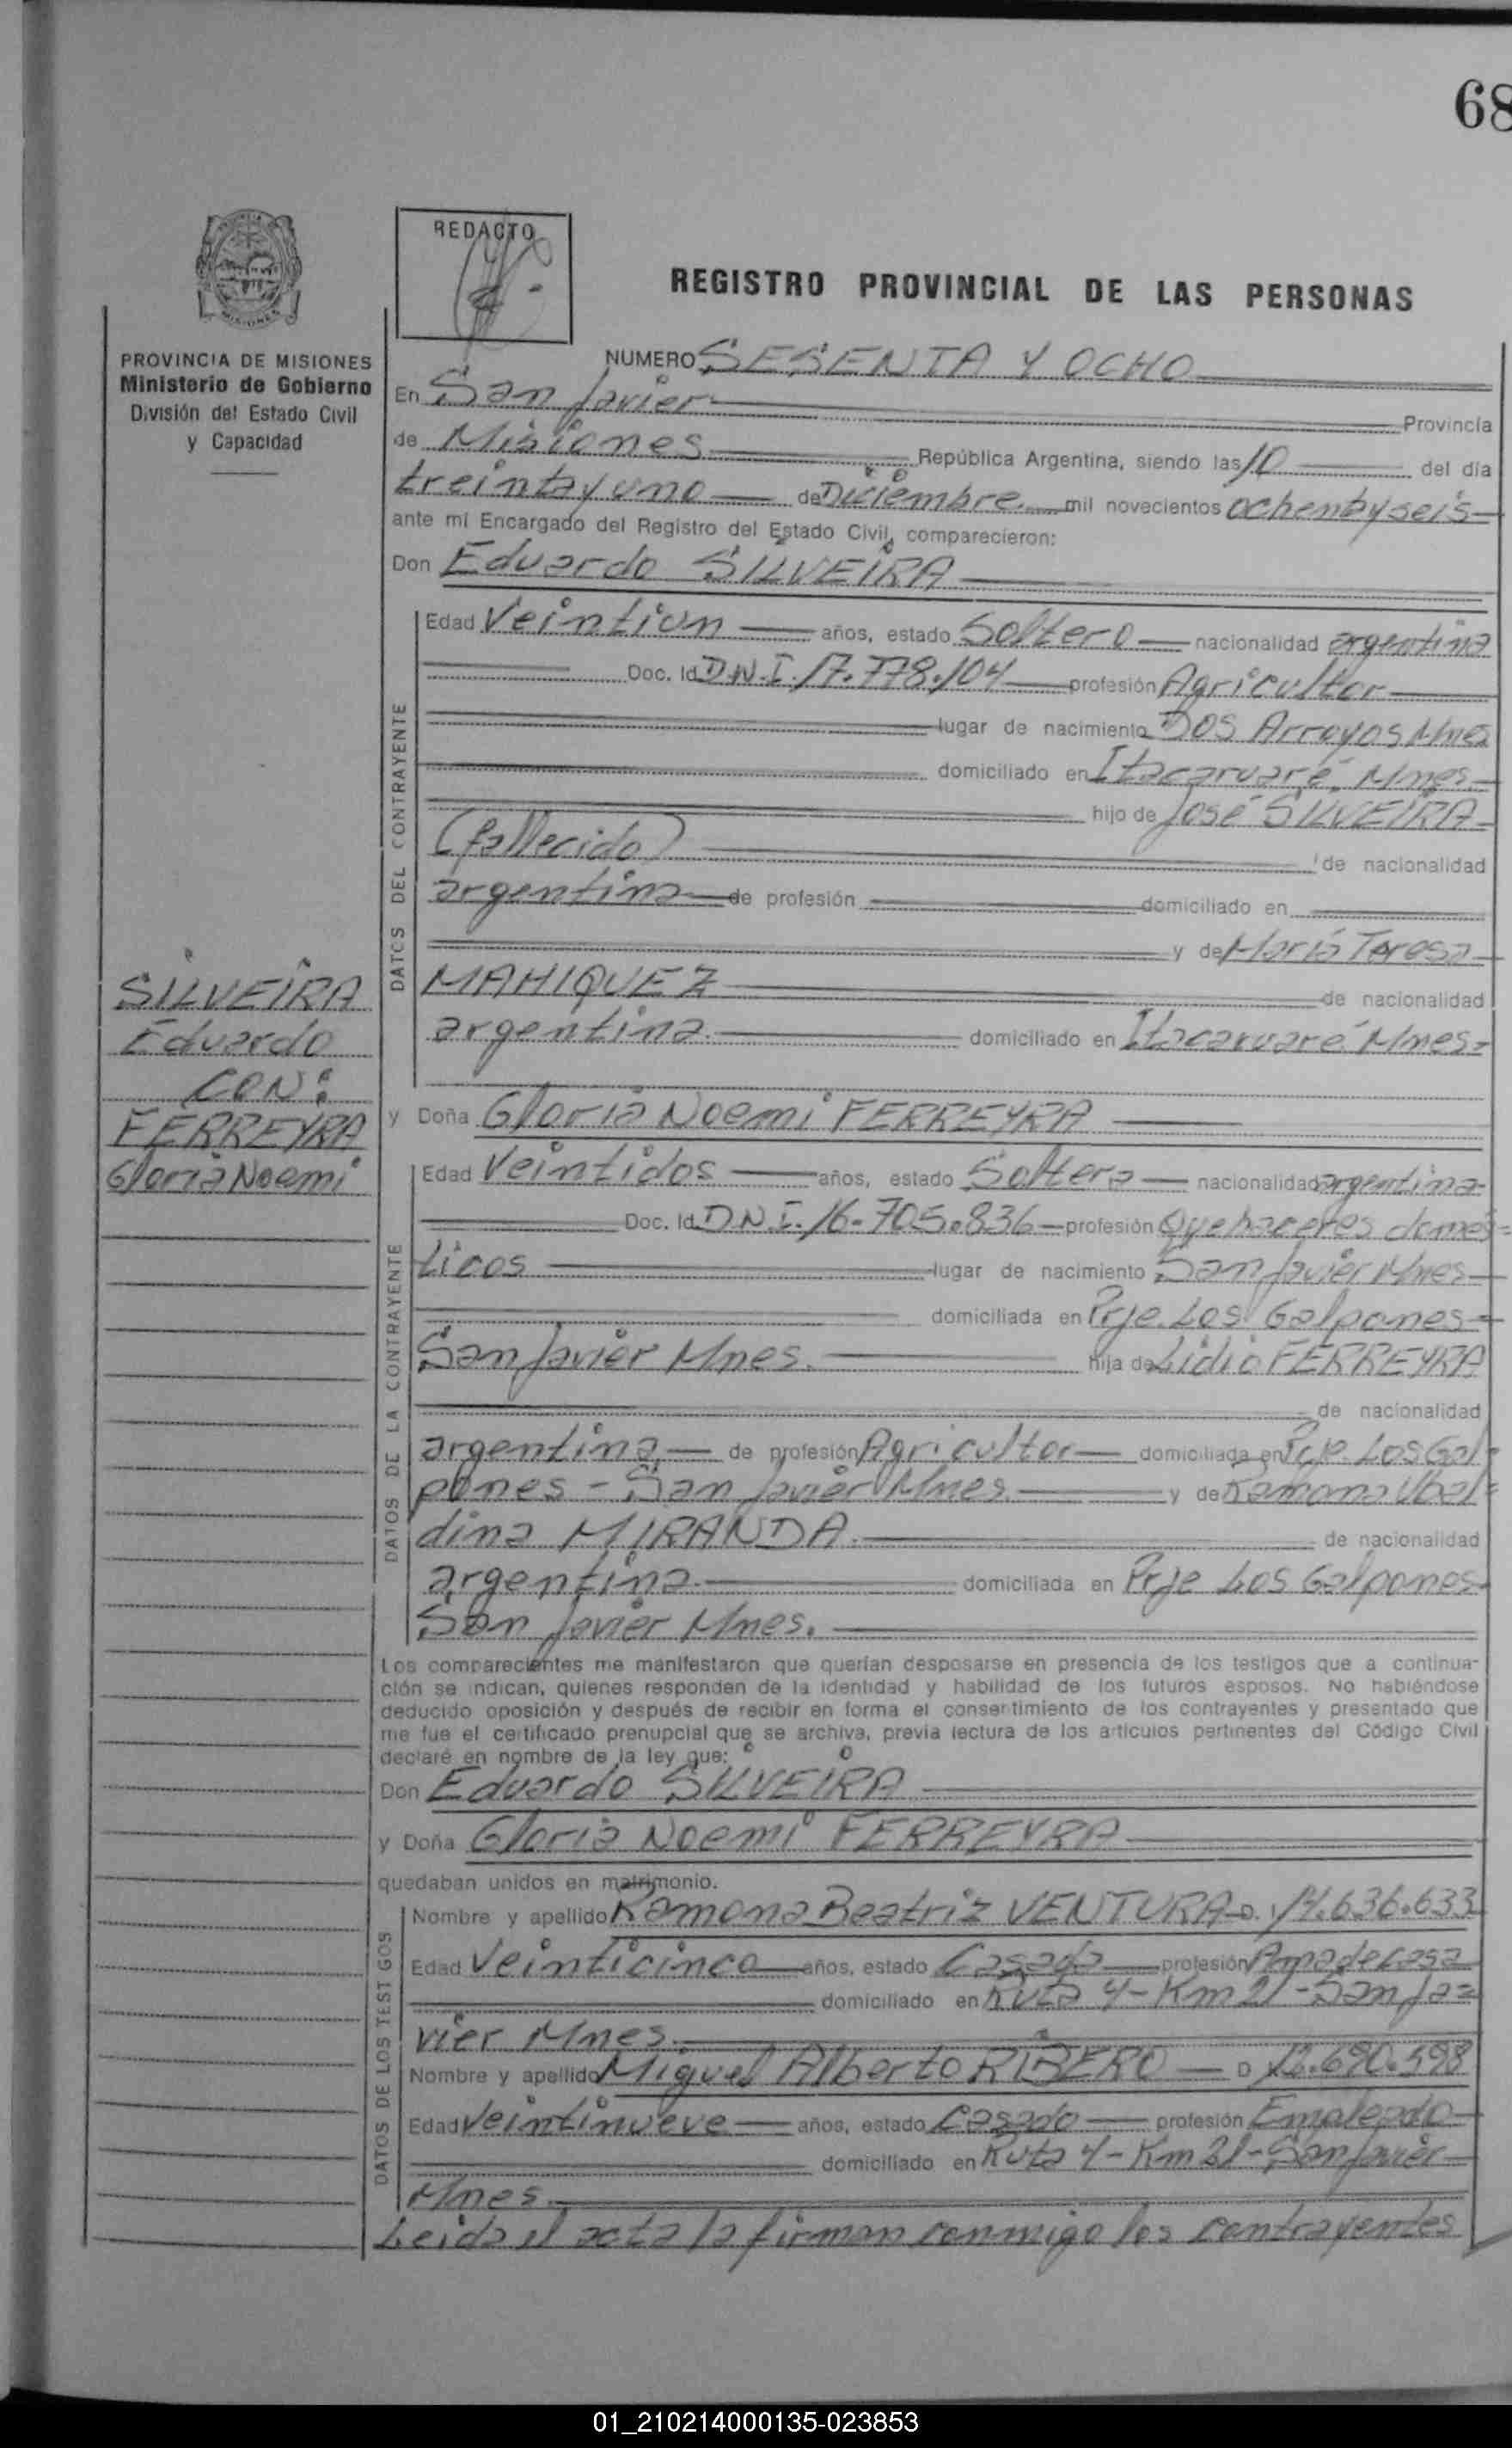 68
REDACTO
REGISTRO PROVINCIAL DE LAS PERSONAS
PROVINCIA DE MISIONES
Ministerio de Gobierno
División del Estado Civil
y Capacidad
NUMERO SESENTA Y OCHO
En San Javier Provincia
de Misiones República Argentina, siendo las 10 del día
treinta y uno de Diciembre mil novecientos ochenta y seis
ante mí Encargado del Registro del Estado Civil, comparecieron:
Don Eduardo SILVEIRA
DATOS DEL CONTRAYENTE
Edad Veintiun años, estado Soltero nacionalidad argentina
Doc. Id. D.N.I. 17.778.104 profesión Agricultor
lugar de nacimiento Dos Arroyos Mnes
domiciliado en Itacaruaré, Mnes.
hijo de José SILVEIRA
(fallecido) de nacionalidad
argentina de profesión domiciliado en
y de María Teresa
MAHIQUEZ de nacionalidad
argentina. domiciliado en Itacaruaré Mnes=
SILVEIRA
Eduardo
CON:
FERREYRA
Gloria Noemi
y Doña Gloria Noemi FERREYRA
DATOS DE LA CONTRAYENTE
Edad Veintidos años, estado Soltera nacionalidad argentina
Doc. Id. D.N.I. 16.705.836 profesión Quehaceres domes=
ticos lugar de nacimiento San Javier Mnes
domiciliada en Prje. Los Galpones
San Javier Mnes. hija de Lidio FERREYRA
de nacionalidad
argentina de profesión Agricultor domiciliada en Prje. Los Gal=
pones - San Javier Mnes. y de Ramona Ubal=
dina MIRANDA. de nacionalidad
argentina domiciliada en Prje Los Galpones
San Javier Mnes.
Los comparecientes me manifestaron que querían desposarse en presencia de los testigos que a continua-
ción se indican, quienes responden de la identidad y habilidad de los futuros esposos. No habiéndose
deducido oposición y después de recibir en forma el consentimiento de los contrayentes y presentado que
me fue el certificado prenupcial que se archiva, previa lectura de los artículos pertinentes del Código Civil
declaré en nombre de la ley que:
Don Eduardo SILVEIRA
y Doña Gloria Noemi FERREYRA
quedaban unidos en matrimonio.
DATOS DE LOS TESTIGOS
Nombre y apellido Ramona Beatriz VENTURA D. I. 14.636.633
Edad Veinticinco años, estado Casada profesión Ama de casa
domiciliado en Ruta 4 - Km 21 - San Ja=
vier Mnes.
Nombre y apellido Miguel Alberto RIBERO D. I. 12.690.598
Edad Veintinueve años, estado Casado profesión Empleado
domiciliado en Ruta 4 - Km 21 - San Javier
Mnes.
Leida el acta la firman conmigo los contrayentes
01_210214000135-023853